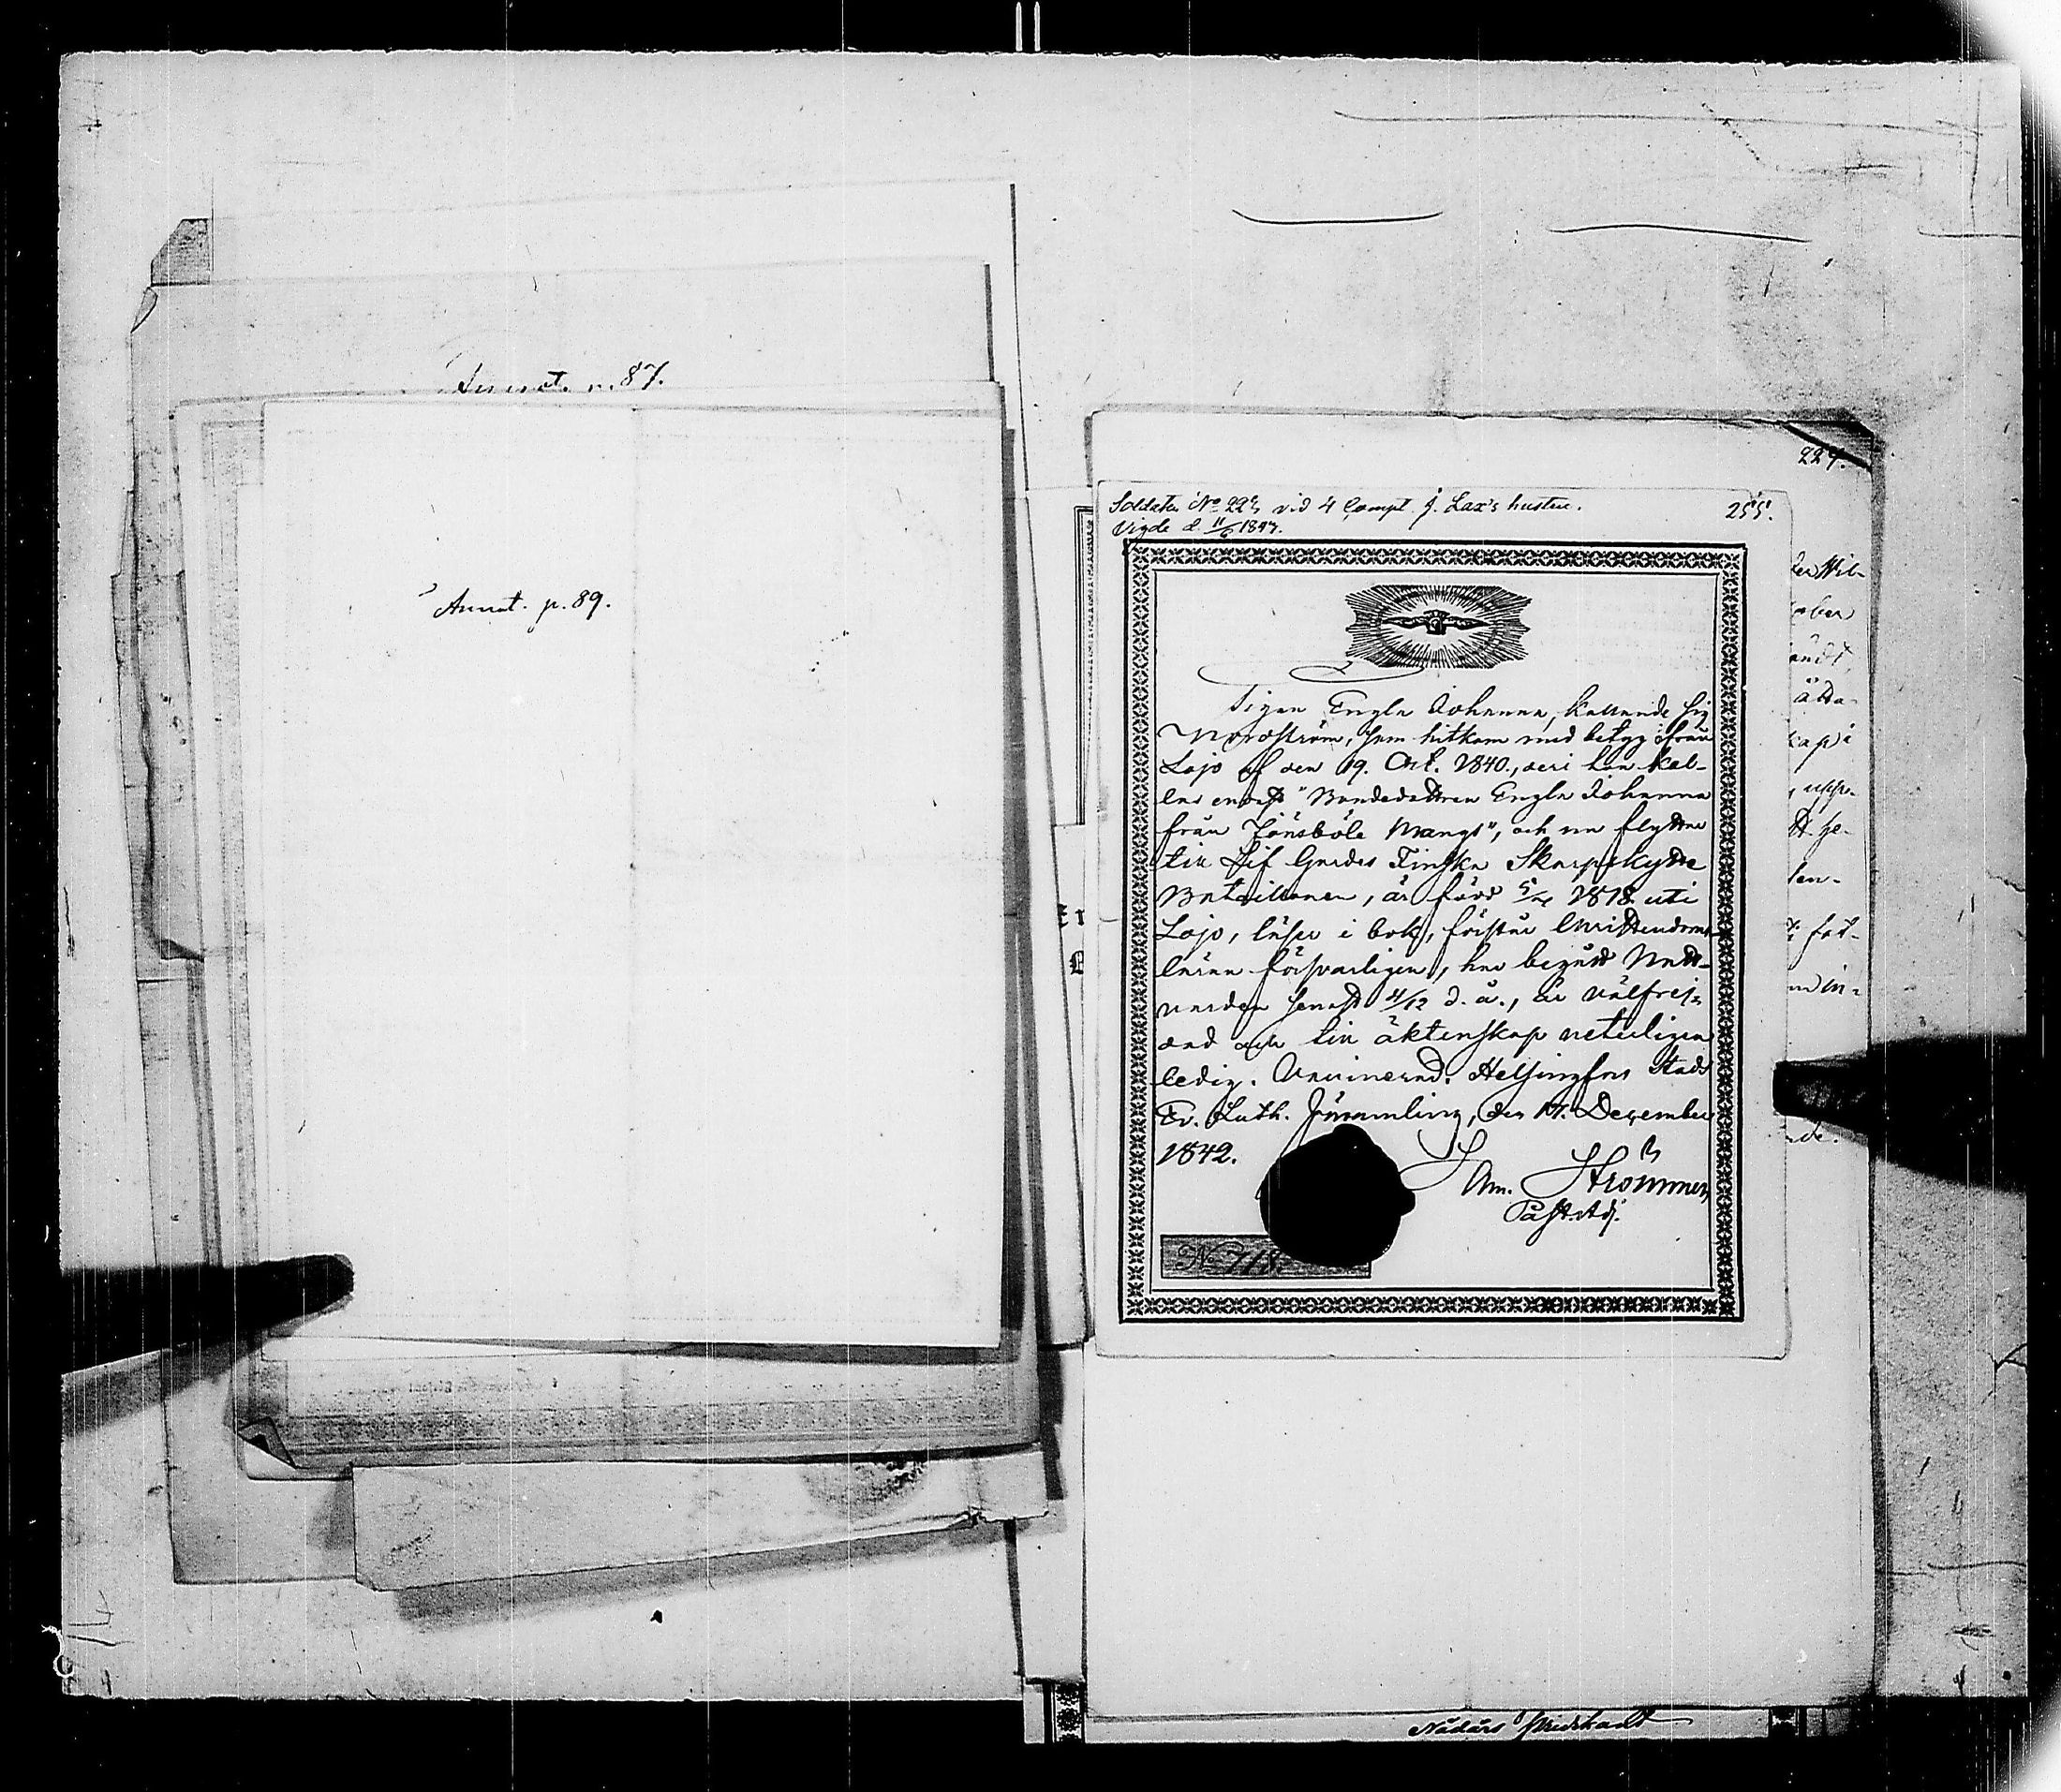 Annot. p. 87.
Annot. p. 89.
227.
Soldaten No 227 vid 4 Comp. J. Lax's hustru.
255.
Vigde d. 11/6 1847.
Pigan Engla Johanna, kallande sig
Nordström, som hitkom med betyg ifrån
Lojo af den 19. Oct. 1840, deri hon kal-
las endast "Bondedottren Engla Johanna
från Jönsböle Mangs", och nu flyttar
till Lif Gardes Finska Skarpskytte
Bataillonen, är född 1818 uti
Lojo, läser i bok, förstår Christendoms-
läran försvarligen, har begått Natt-
varden senast 4/12 d. å., är välfrej-
dad och till äktenskap veterligen
ledig. Helsingfors Stads
Ev. Luth. Församling, den 17. December
1842.
Strömmer,
Past. Adj.
No 718.